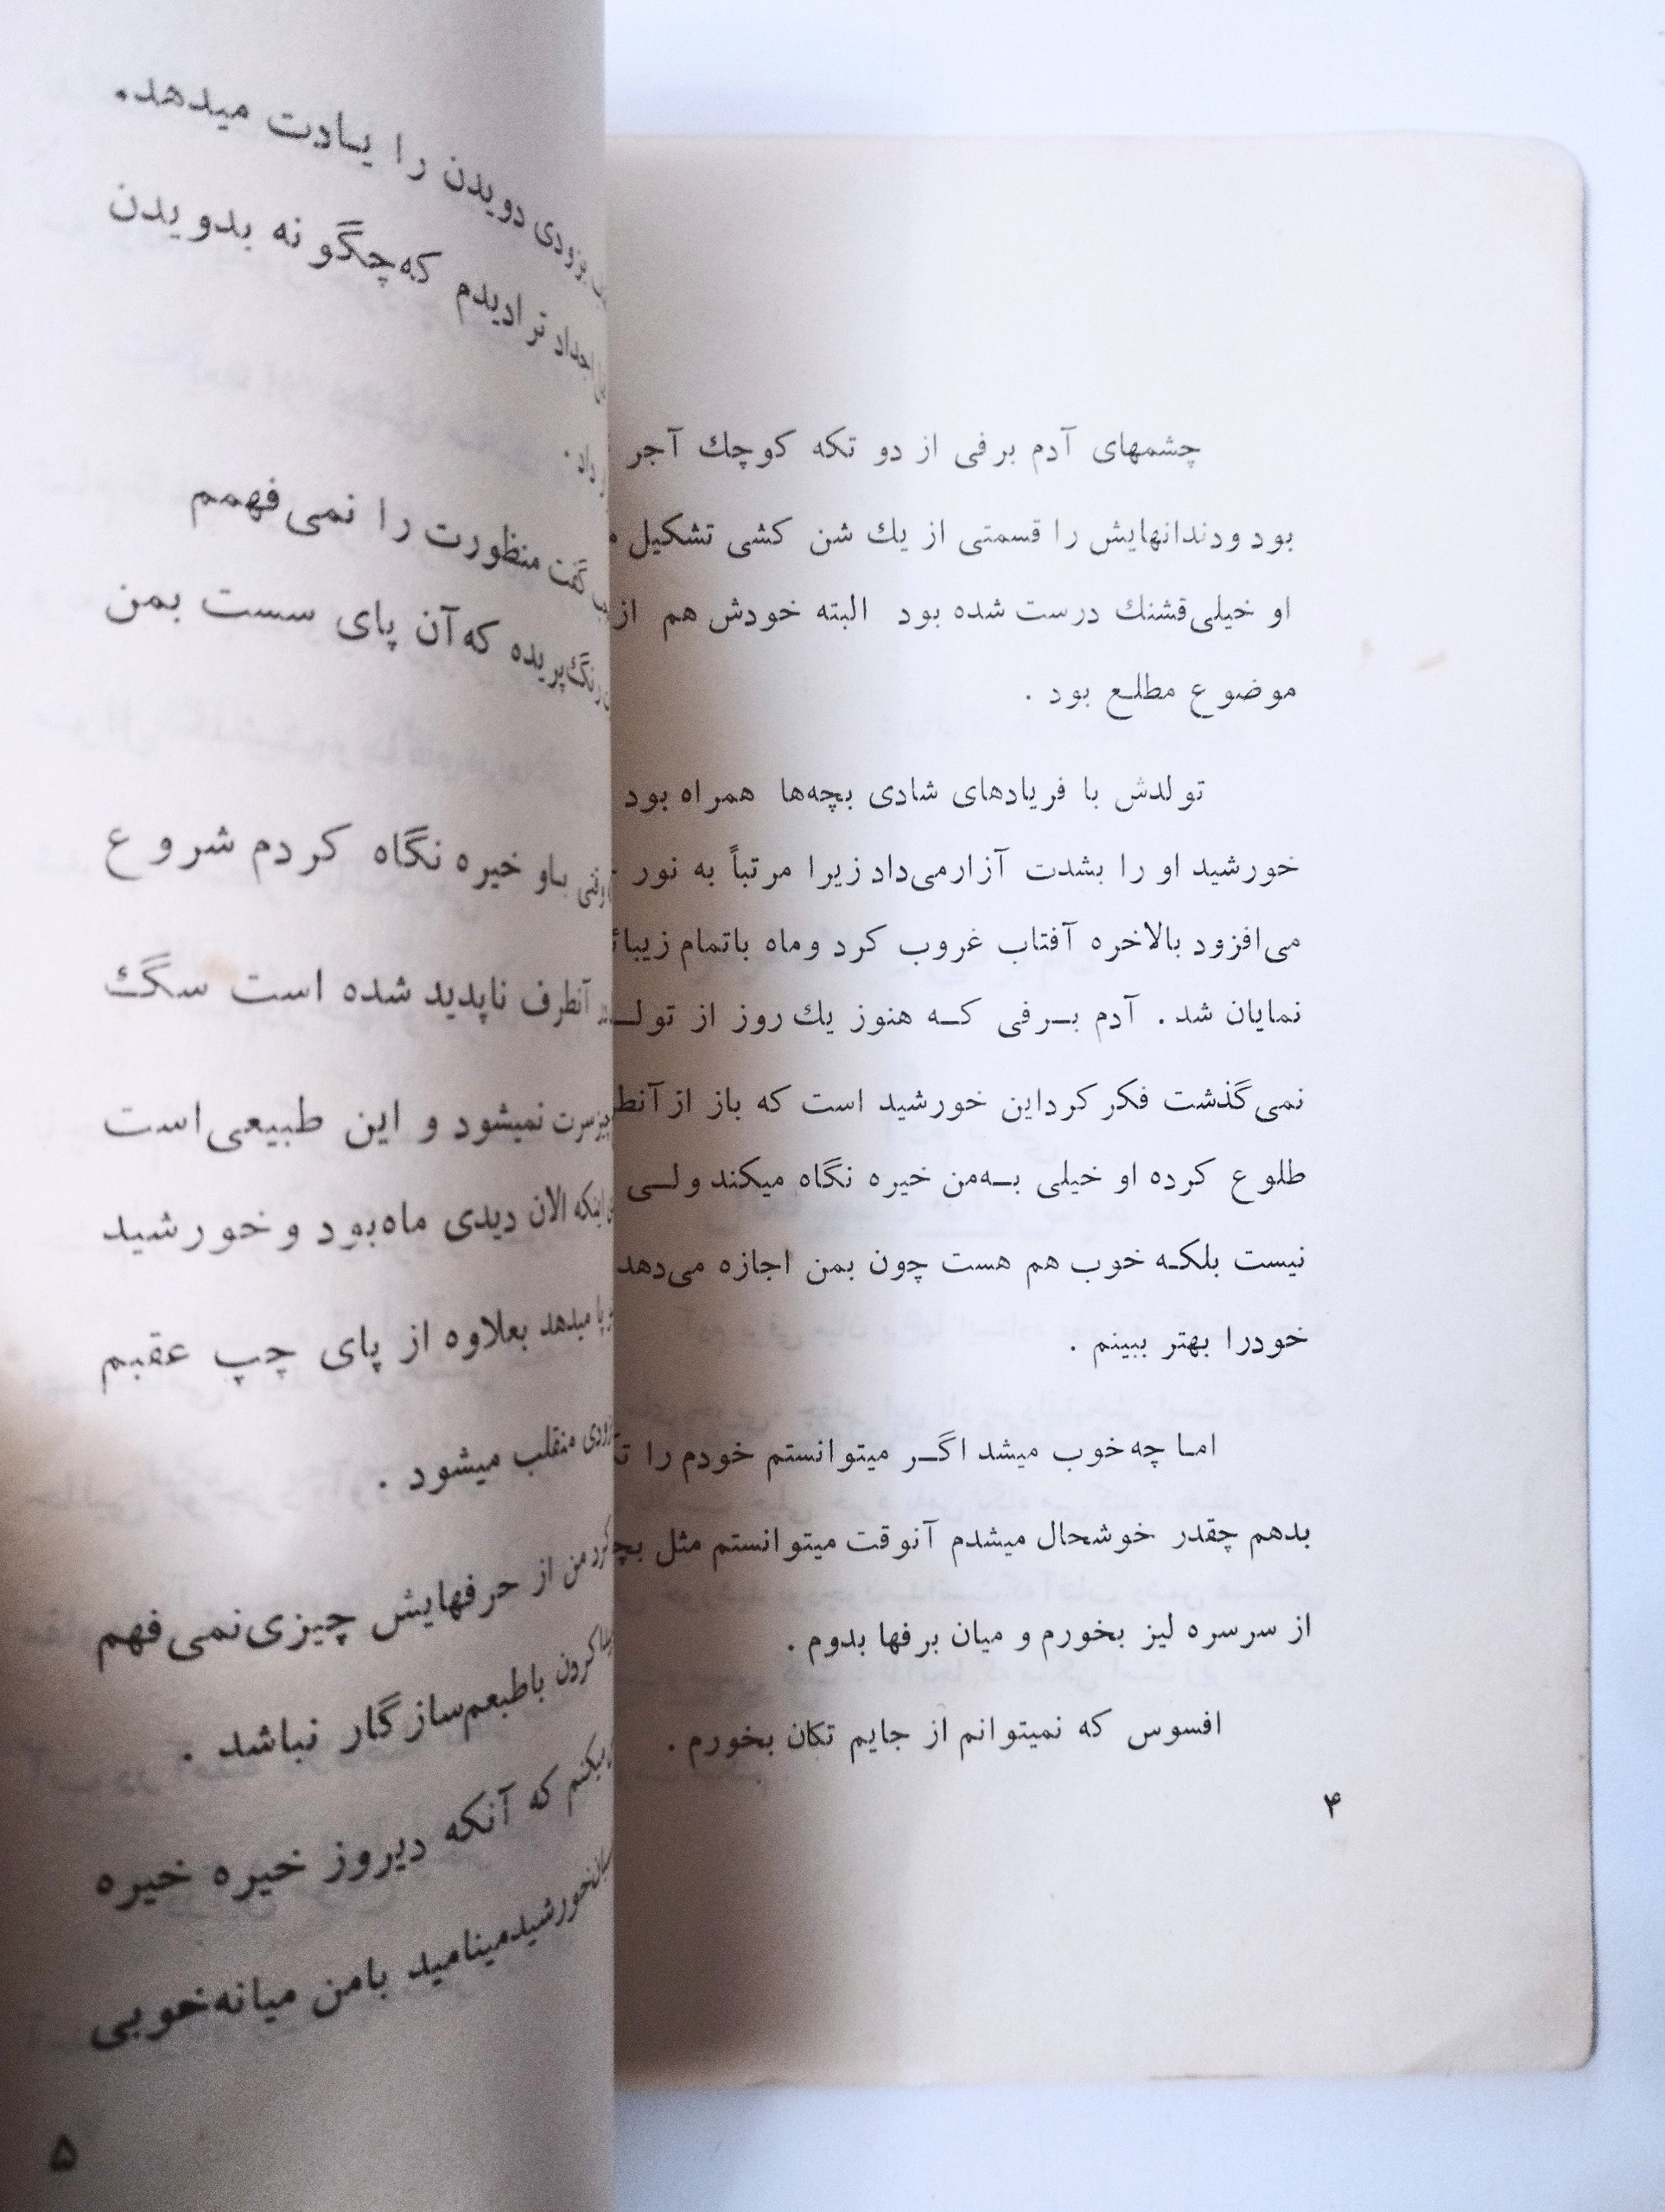 چشمهای آدم برفی از دو تکه کوچك آجر
بود ودندانهایش را قسمتی از یك شن کشی تشکیل
او خیلی‌قشنك درست شده بود البته خودش هم از
موضوع مطلع بود .
تولدش با فریادهای شادی بچه‌ها همراه بود
خورشید او را بشدت آزارمی‌داد زیرا مرتباً به نور
می‌افزود بالاخره آفتاب غروب کرد وماه باتمام
نمایان شد . آدم بــرفی کــه هنوز یك روز از
نمی‌گذشت فکر کرداین خورشید است که باز از
طلوع کرده او خیلی بــه‌من خیره نگاه میکند ولــی
نیست بلکـه خوب هم هست چون بمن اجازه می‌دهد
خودرا بهتر ببینم .
امـا چه‌خوب میشد اگــر میتوانستم خودم را
بدهم چقدر خوشحال میشدم آنوقت میتوانستم مثل
از سرسره لیز بخورم و میان برفها بدوم .
افسوس که نمیتوانم از جایم تکان بخورم .
۴
بزودی دویدن را یـادت میدهد.
اجداد ترادیدم که‌چگونه بدویدن
گفت منظورت را نمی‌فهمم
رنگ‌پریده که‌آن پای سست بمن
باو خیره نگاه کردم شروع
آنطرف ناپدید شده است سگ
سرت نمیشود و این طبیعی‌است
اینکه الان دیدی ماه‌بود و خورشید
میدهد بعلاوه از پای چپ عقبم
منقلب میشود .
من از حرفهایش چیزی‌نمی‌فهم
باطبعم‌سازگار نباشد .
که آنکه دیروز خیره خیره
خورشیدمینامید بامن میانه‌خوبی
۵